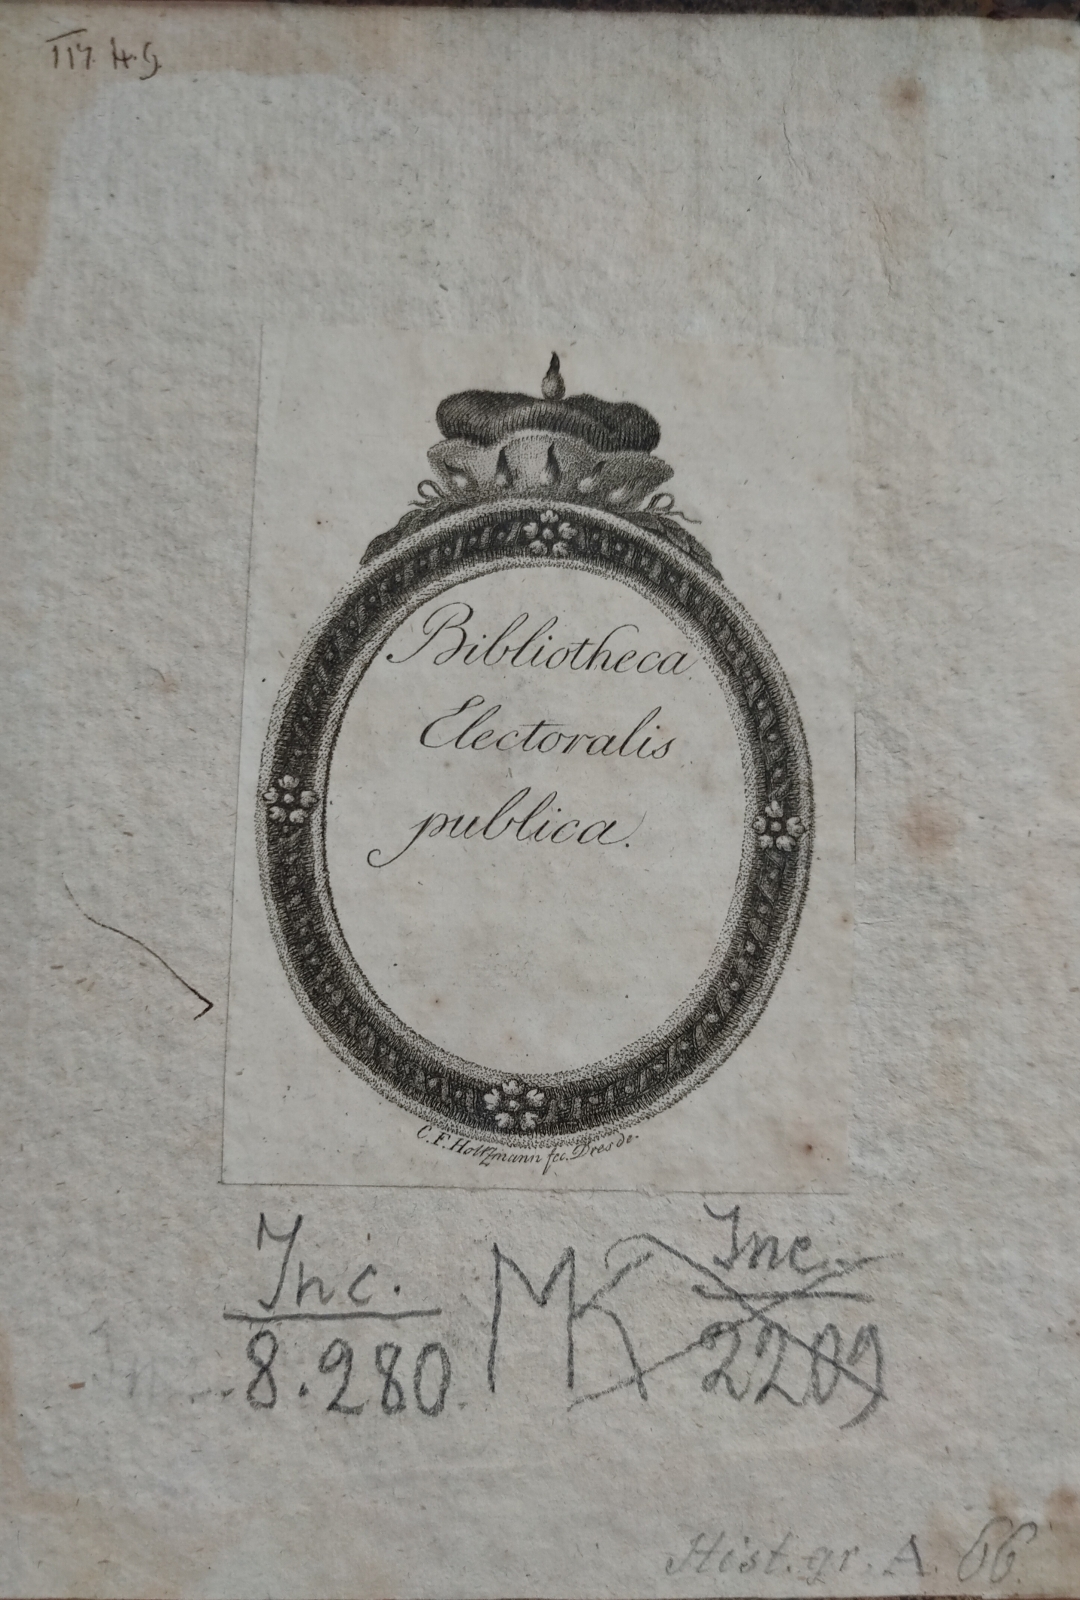 Bibliotheca
Electoralis
publica.
C.F. Holtzmann fec. Dresde.
Inc.
8.280
MK
Inc.
2209
Hist. gr. A. 66